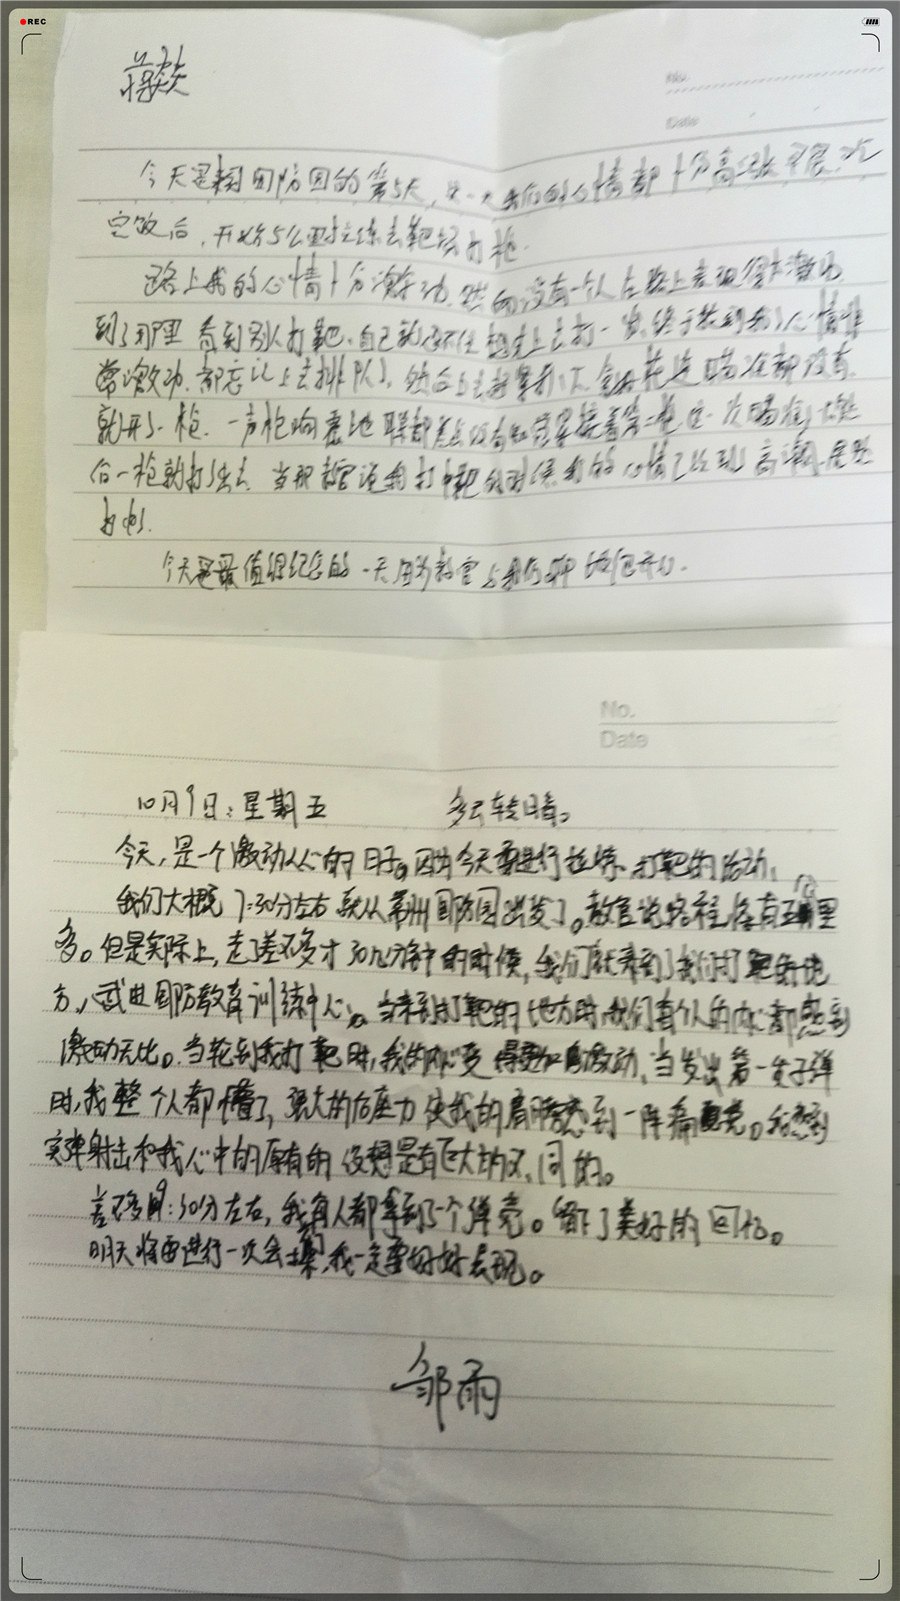 REC
蒋焱
No.
Date
今天是来国防园的第5天,我们的心情都十分高涨
完饭后,开始5公里拉练去靶场打枪.
路上我的心情十分激动,没有一个人在路上表现得不激动
到了那里 看到别人打靶,自己就想上去打一发,终于轮到我了心情非
常激动,都忘记上去排队了,
就开了一枪.一声枪响 接着第二枪这一次瞄准了然
后一枪就打了出去 当那教官说我打中靶的时候我的心情已经到了高潮
今天是最值得纪念的一天因为教官与我们聊
No.
Date
10月9日:星期五 多云转晴。
今天,是一个激动人心的日子。因为今天要进行拉练、打靶的活动.
我们大概7:30分左右就从常州国防园出发了。教官说路程将有里
多。但是实际上,走了差不多才30几分钟的时候,我们就来到了我们打靶的地
方,武进国防教育训练中心。当来到打靶的地方时,我们每个人的内心都感到
激动无比。当轮到我打靶时,我的内心变得更加激动,当发出第一发子弹
时,我整个人都懵了,强大的后座力使我的肩膀感到一阵痛觉。我感到
实弹射击和我心中的原有的设想是有巨大的不同的。
差不多9:30分左右,我每人都拿到了一个弹壳。留下了美好的回忆。
明天将要进行一次会操,我一定要好好表现。
邹雨